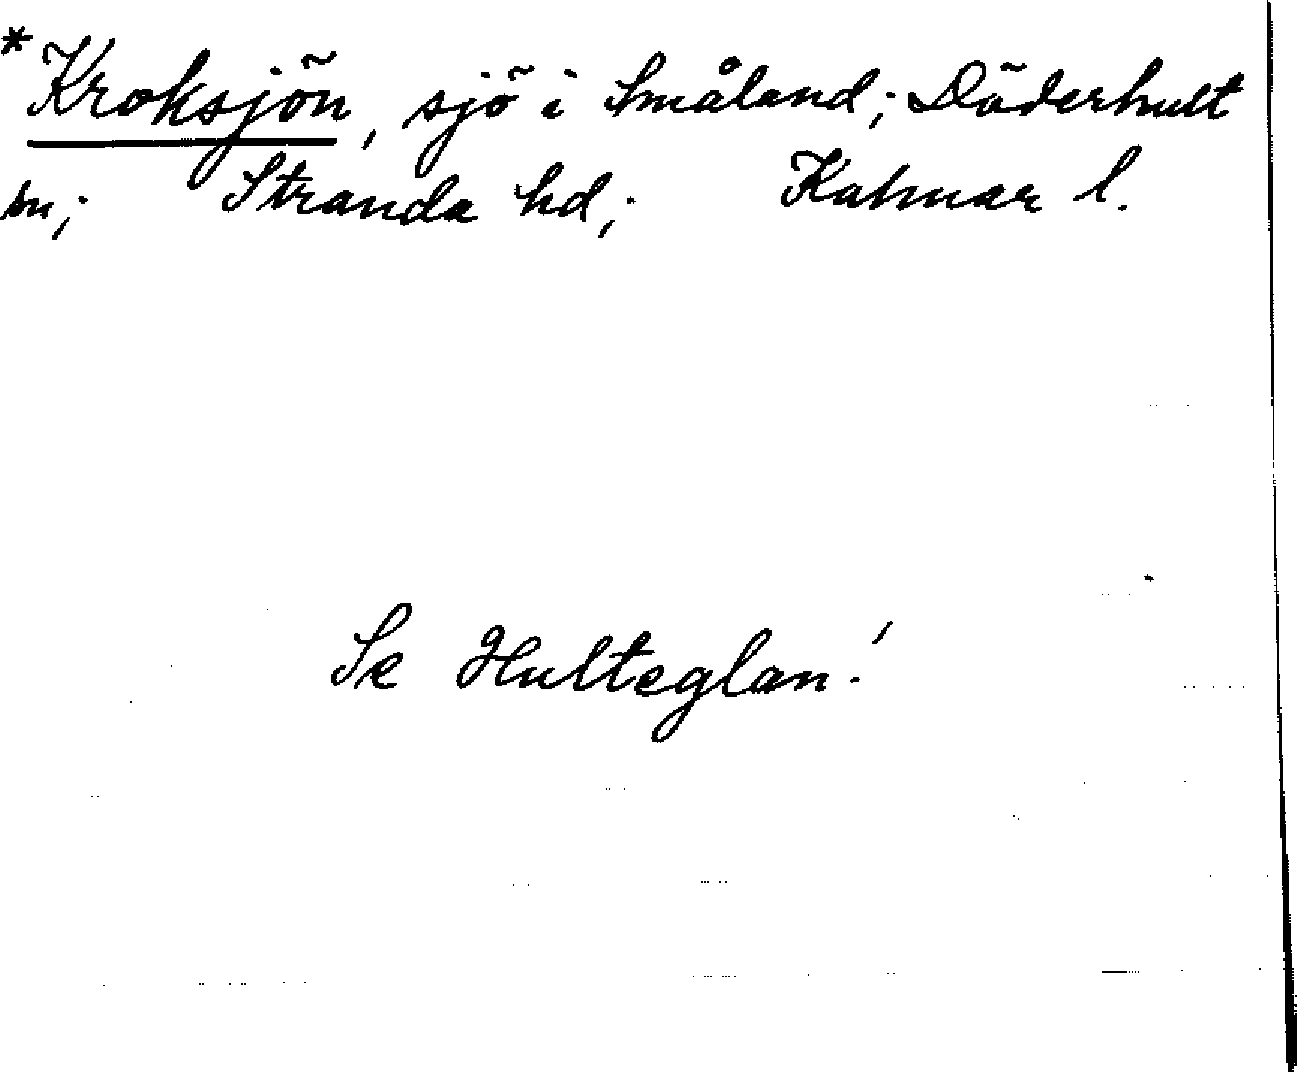 *Kroksjön, sjö i Småland; Döderhult
sn; Stranda hd; Kalmar l.
Se Hulteglan!